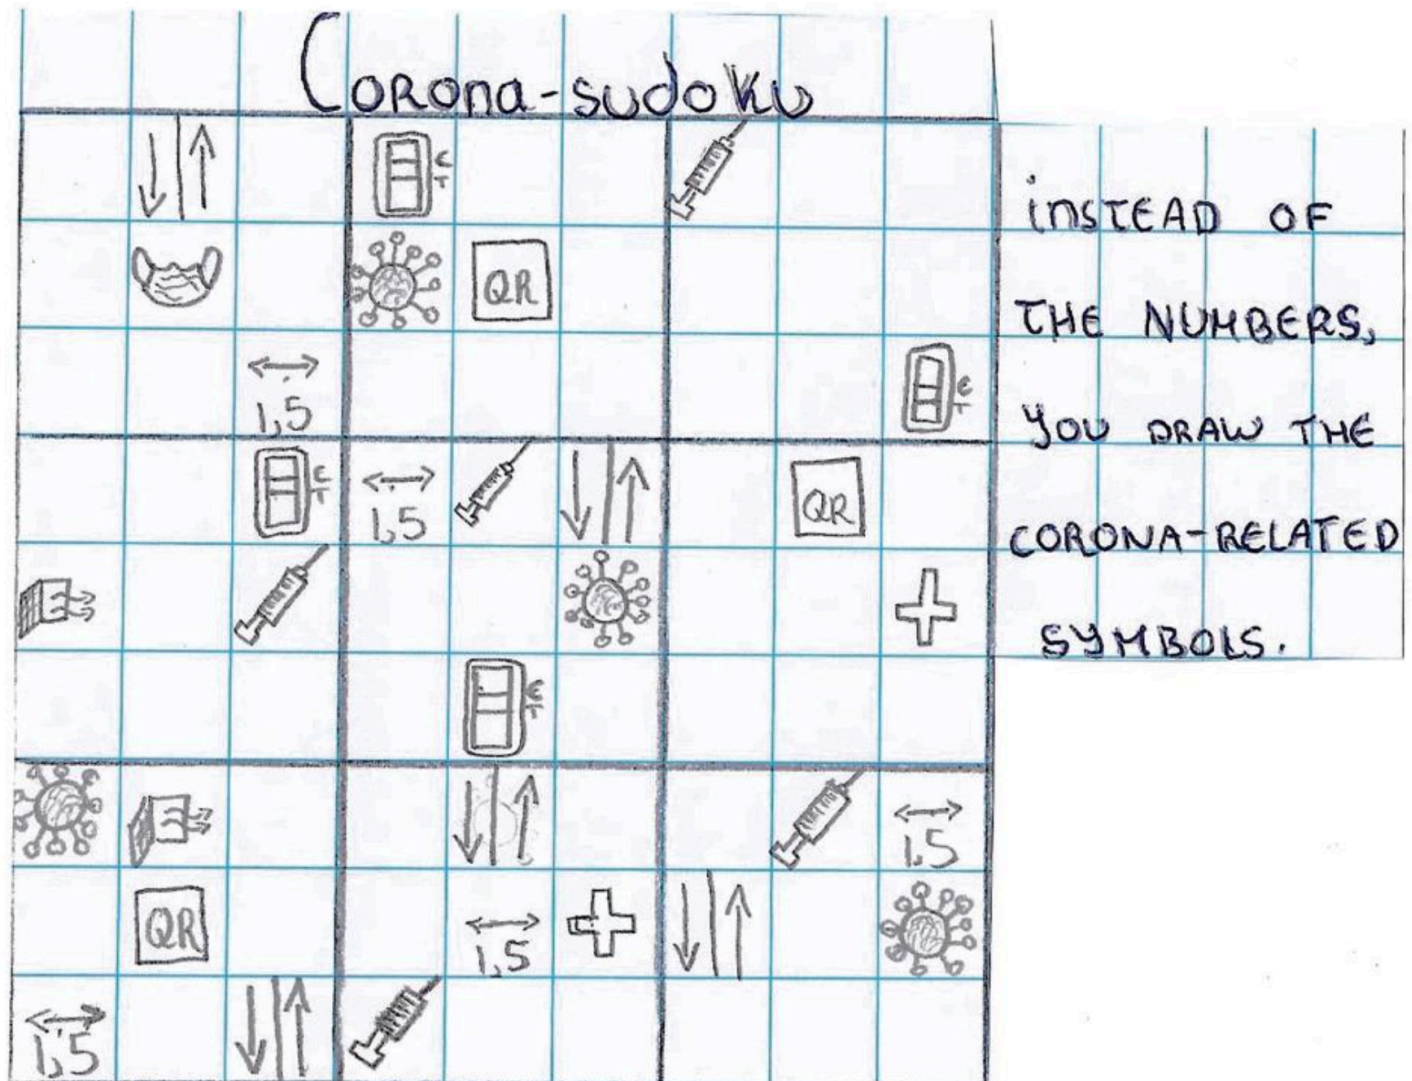 Corona-sudoku
C
T
QR
1,5
C
T
C
T
1,5
QR
C
T
1,5
QR
1,5
1,5
INSTEAD OF
THE NUMBERS,
YOU DRAW THE
CORONA-RELATED
SYMBOLS.